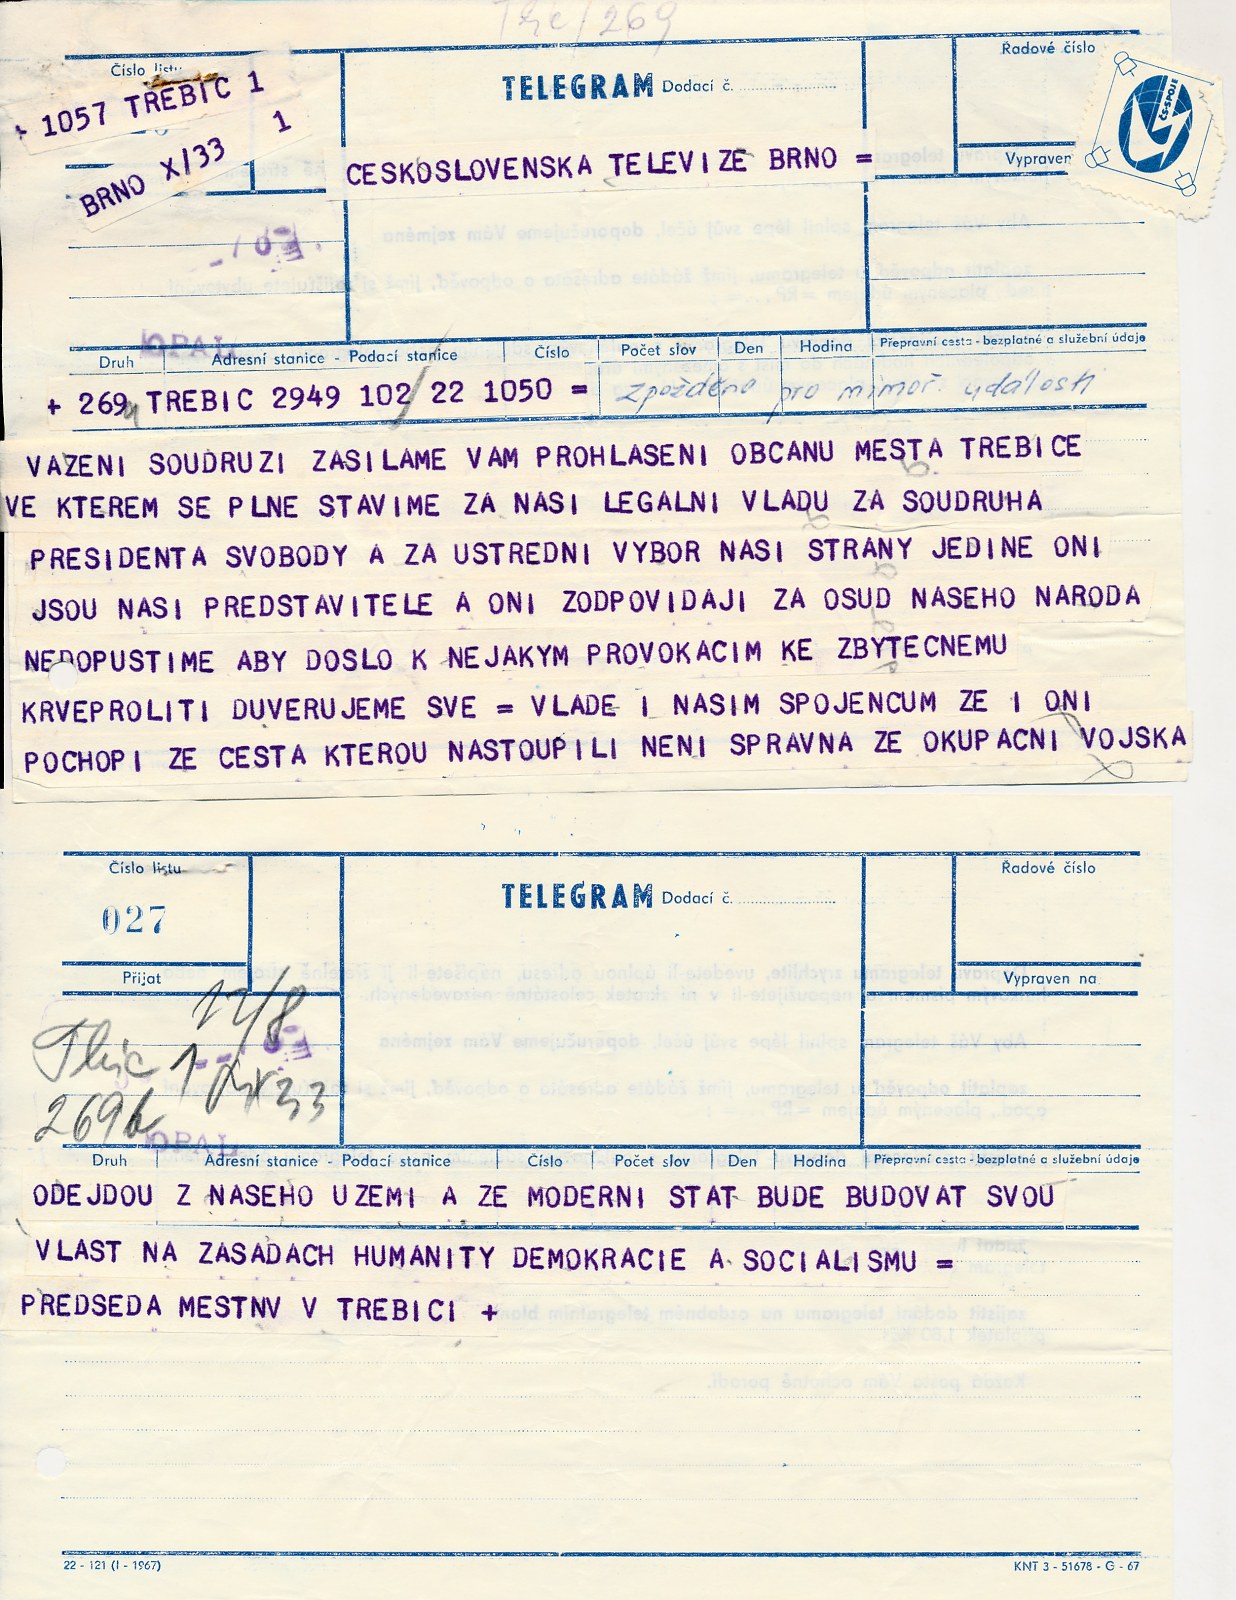 Třc/269
Číslo listu
Řadové číslo
TELEGRAM Dodací č.
+ 1057 TREBIC 1
BRNO X/33 1
CESKOSLOVENSKA TELEVIZE BRNO =
Vypraven
ČS-SPOJE
OPAL
Druh Adresní stanice - Podací stanice Číslo Počet slov Den Hodina Přepravní cesta - bezplatné a služební údaje
+ 269 TREBIC 2949 102/22 1050 = zpožděno pro mimoř. události
VAZENI SOUDRUZI ZASILAME VAM PROHLASENI OBCANU MESTA TREBICE
VE KTEREM SE PLNE STAVIME ZA NASI LEGALNI VLADU ZA SOUDRUHA
PRESIDENTA SVOBODY A ZA USTREDNI VYBOR NASI STRANY JEDINE ONI
JSOU NASI PREDSTAVITELE A ONI ZODPOVIDAJI ZA OSUD NASEHO NARODA
NEDOPUSTIME ABY DOSLO K NEJAKYM PROVOKACIM KE ZBYTECNEMU
KRVEPROLITI DUVERUJEME SVE = VLADE I NASIM SPOJENCUM ZE I ONI
POCHOPI ZE CESTA KTEROU NASTOUPILI NENI SPRAVNA ZE OKUPACNI VOJSKA
Číslo listu
Řadové číslo
TELEGRAM Dodací č.
027
Přijat
Vypraven na
269b
OPAL
Druh Adresní stanice - Podací stanice Číslo Počet slov Den Hodina Přepravní cesta - bezplatné a služební údaje
ODEJDOU Z NASEHO UZEMI A ZE MODERNI STAT BUDE BUDOVAT SVOU
VLAST NA ZASADACH HUMANITY DEMOKRACIE A SOCIALISMU =
PREDSEDA MESTNV V TREBICI +
22 - 121 (I - 1967)
KNT 3 - 51678 - G - 67